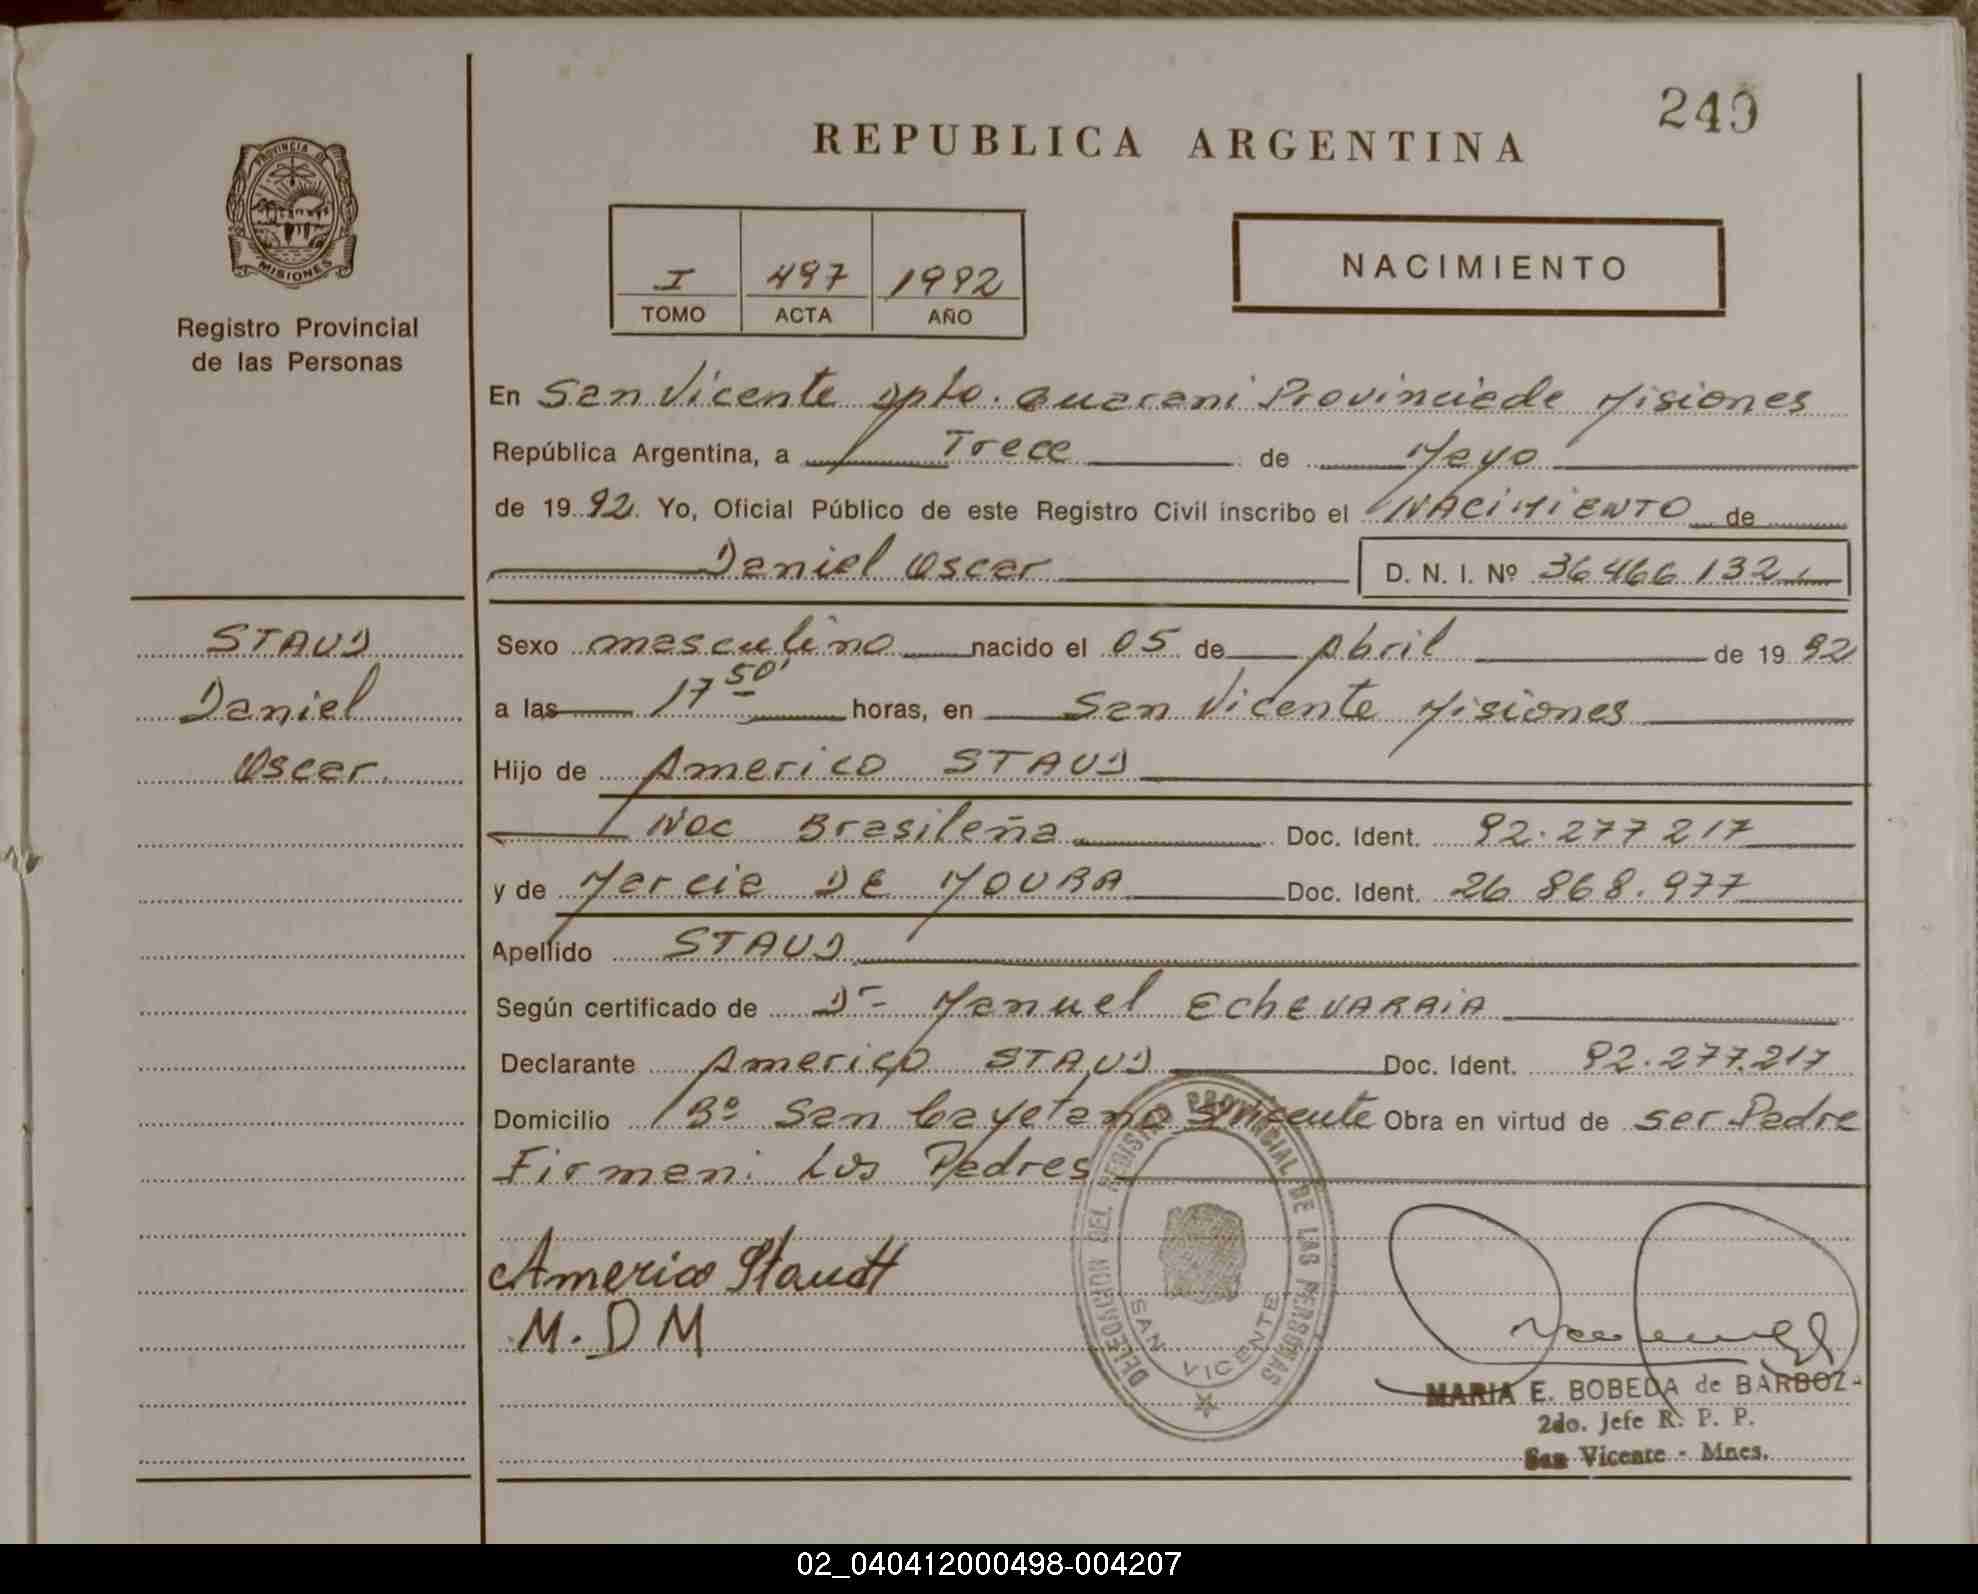 249
REPUBLICA ARGENTINA
PROVINCIA DE
MISIONES
Registro Provincial
de las Personas
I 497 1992
TOMO ACTA AÑO
NACIMIENTO
En San Vicente Dpto. Guarani Provincia de Misiones
República Argentina, a Trece de Mayo
de 1992. Yo, Oficial Público de este Registro Civil inscribo el NACIMIENTO de
Daniel Oscar D. N. I. Nº 36466132
STAUD
Daniel
Oscar
Sexo masculino nacido el 05 de Abril de 1992
a las 17 50' horas, en San Vicente Misiones
Hijo de Americo STAUD
Nac Brasileña Doc. Ident. 92.277217
y de Marcia DE MOURA Doc. Ident. 26 868.977
Apellido STAUD
Según certificado de Dr Manuel EcheVARRiA
Declarante Americo STAUD Doc. Ident. 92.277.217
Domicilio Bº San Cayetano SVicente Obra en virtud de ser Padre
Firman: Los Padres
Americo Staudt
M. D M
DELEGACION DEL REGISTRO PROVINCIAL DE LAS PERSONAS
SAN VICENTE
MARIA E. BOBEDA de BARBOZ
2do. Jefe R. P. P.
San Vicente - Mnes.
02_040412000498-004207